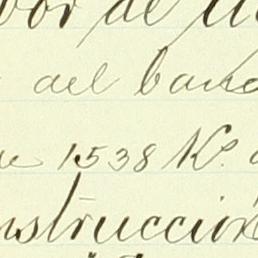 vor de
del band
1538 K.º
nstrucción